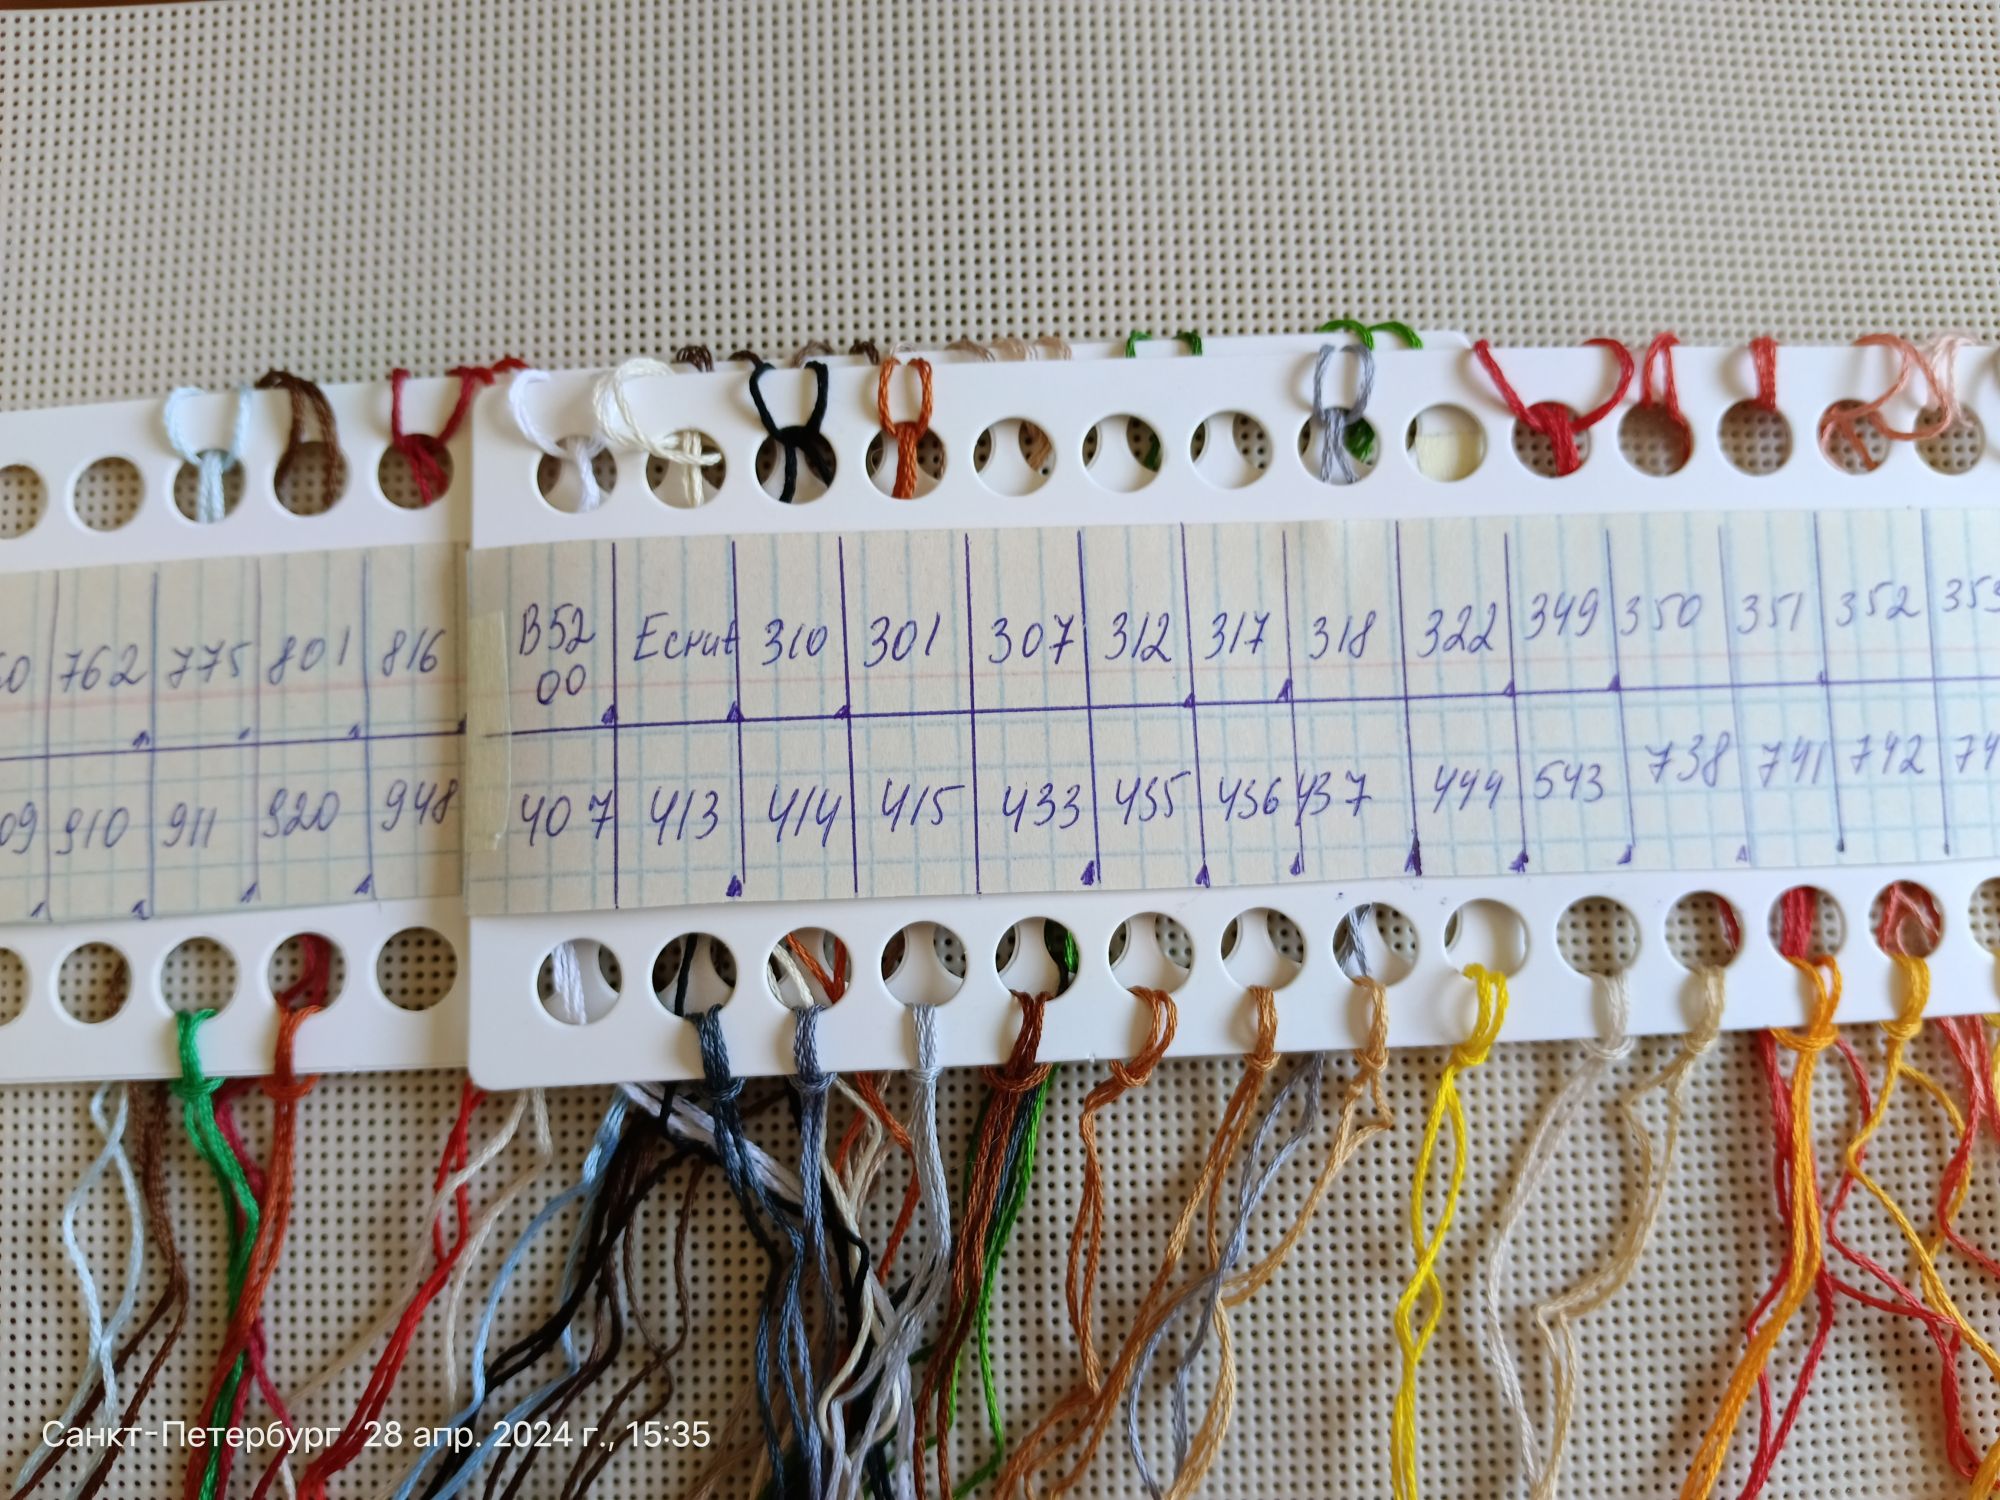 762 775 801 816 B52 Ecrut 310 301 307 312 317 318 322 349 350 351 352
00
09 910 911 920 948 407 413 414 415 433 435 436 437 444 543 738 741 742 74
Санкт-Петербург 28 апр. 2024 г., 15:35